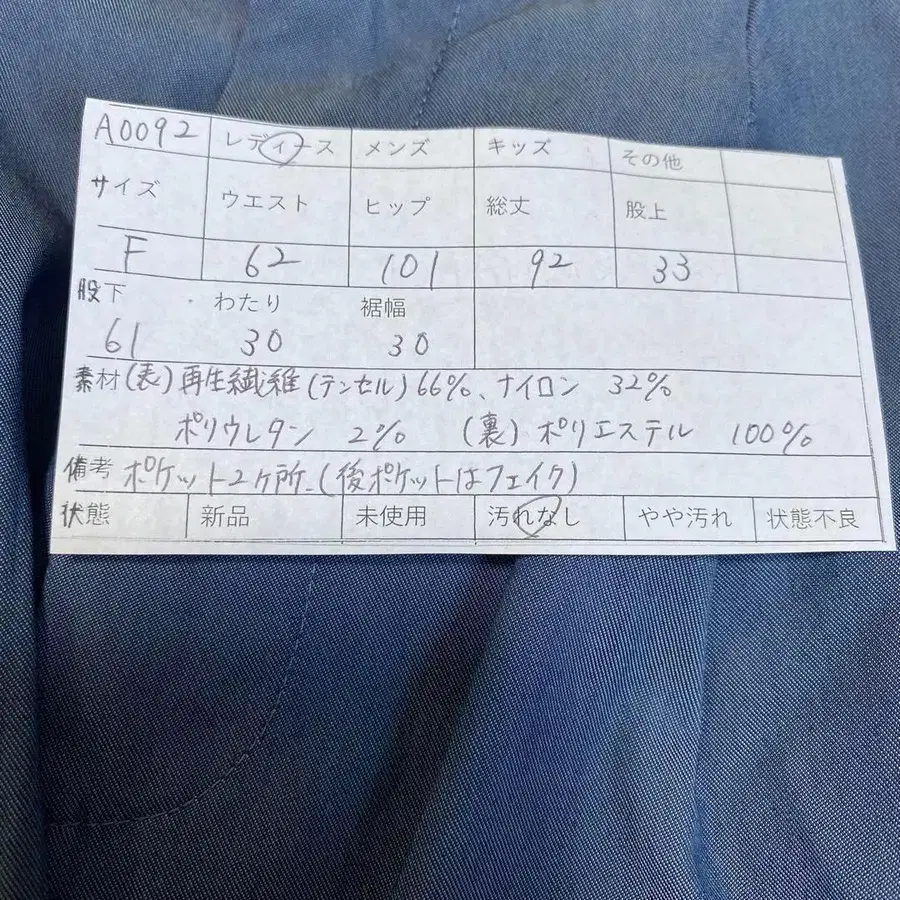 A0092 レディース メンズ キッズ その他
サイズ ウエスト ヒップ 総丈 股上
F 62 101 92 33
股下 わたり 裾幅
61 30 30
素材(表)再生繊維(テンセル)66%、ナイロン 32%
ポリウレタン 2% (裏)ポリエステル 100%
備考 ポケット2ヶ所.(後ポケットはフェイク)
状態 新品 未使用 汚れなし やや汚れ 状態不良